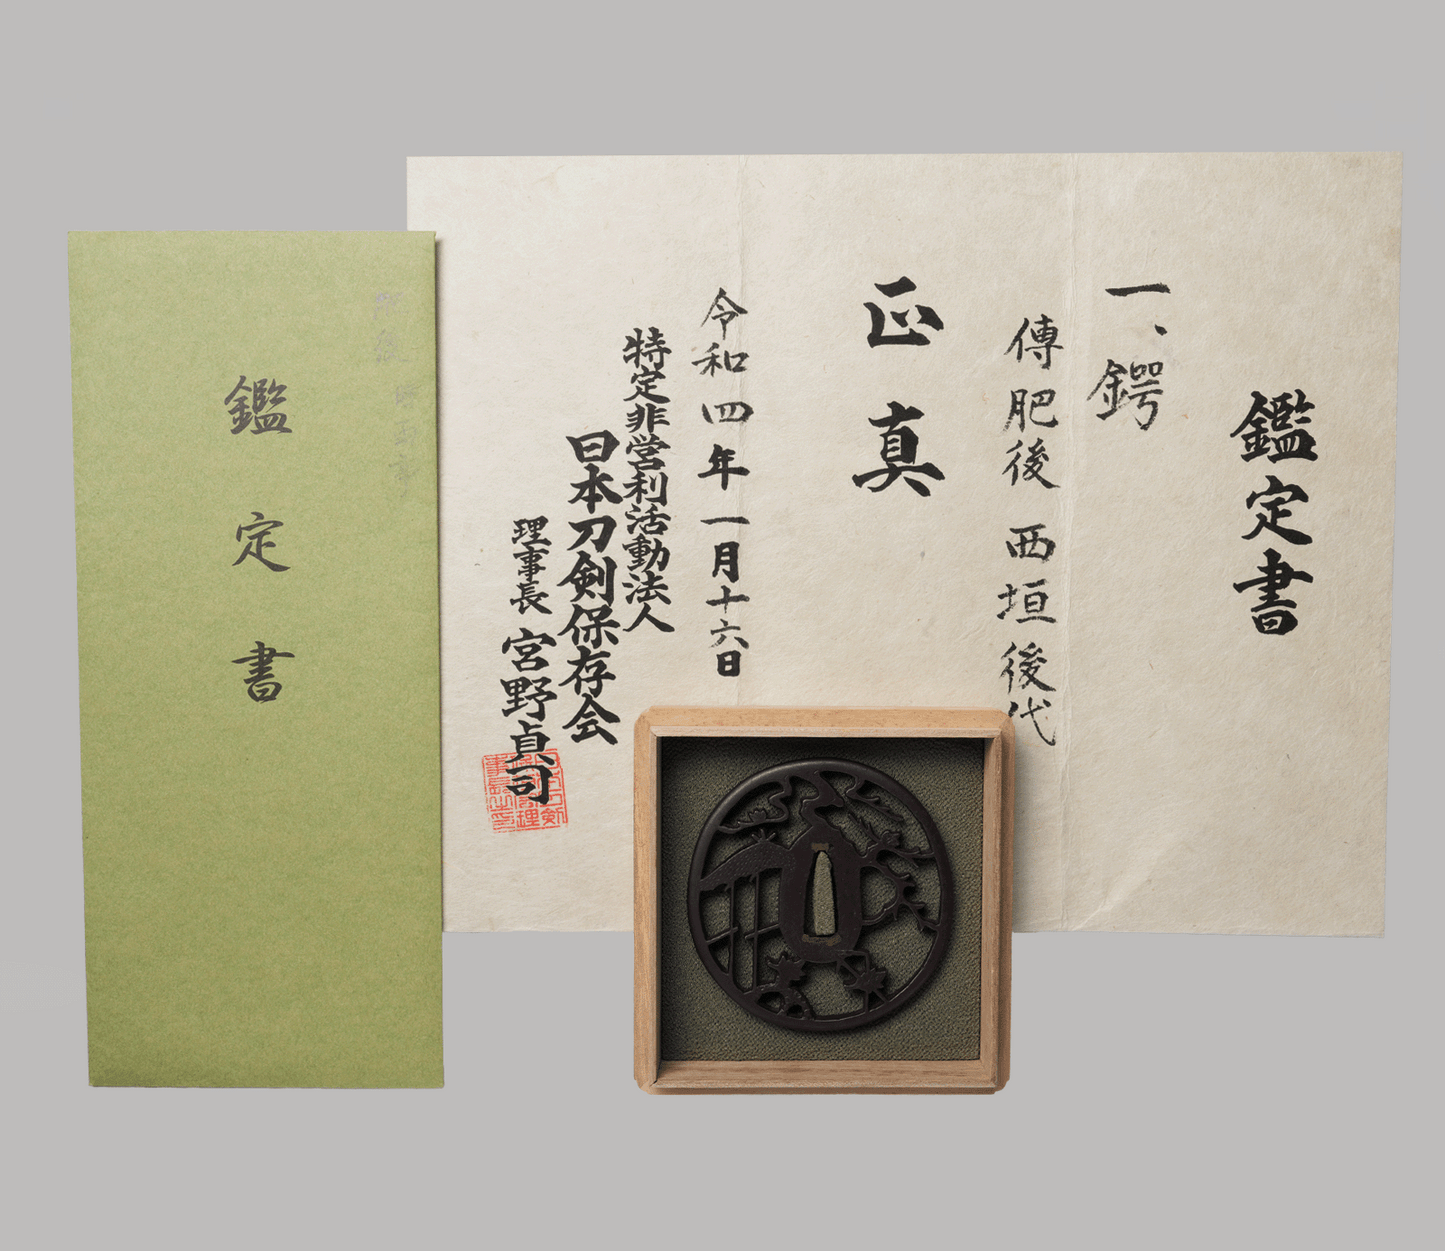 鑑定書
一、鍔
傳肥後 西垣後代
正真
令和四年一月十六日
特定非営利活動法人
日本刀剣保存会
理事長 宮野貞司
鑑定書